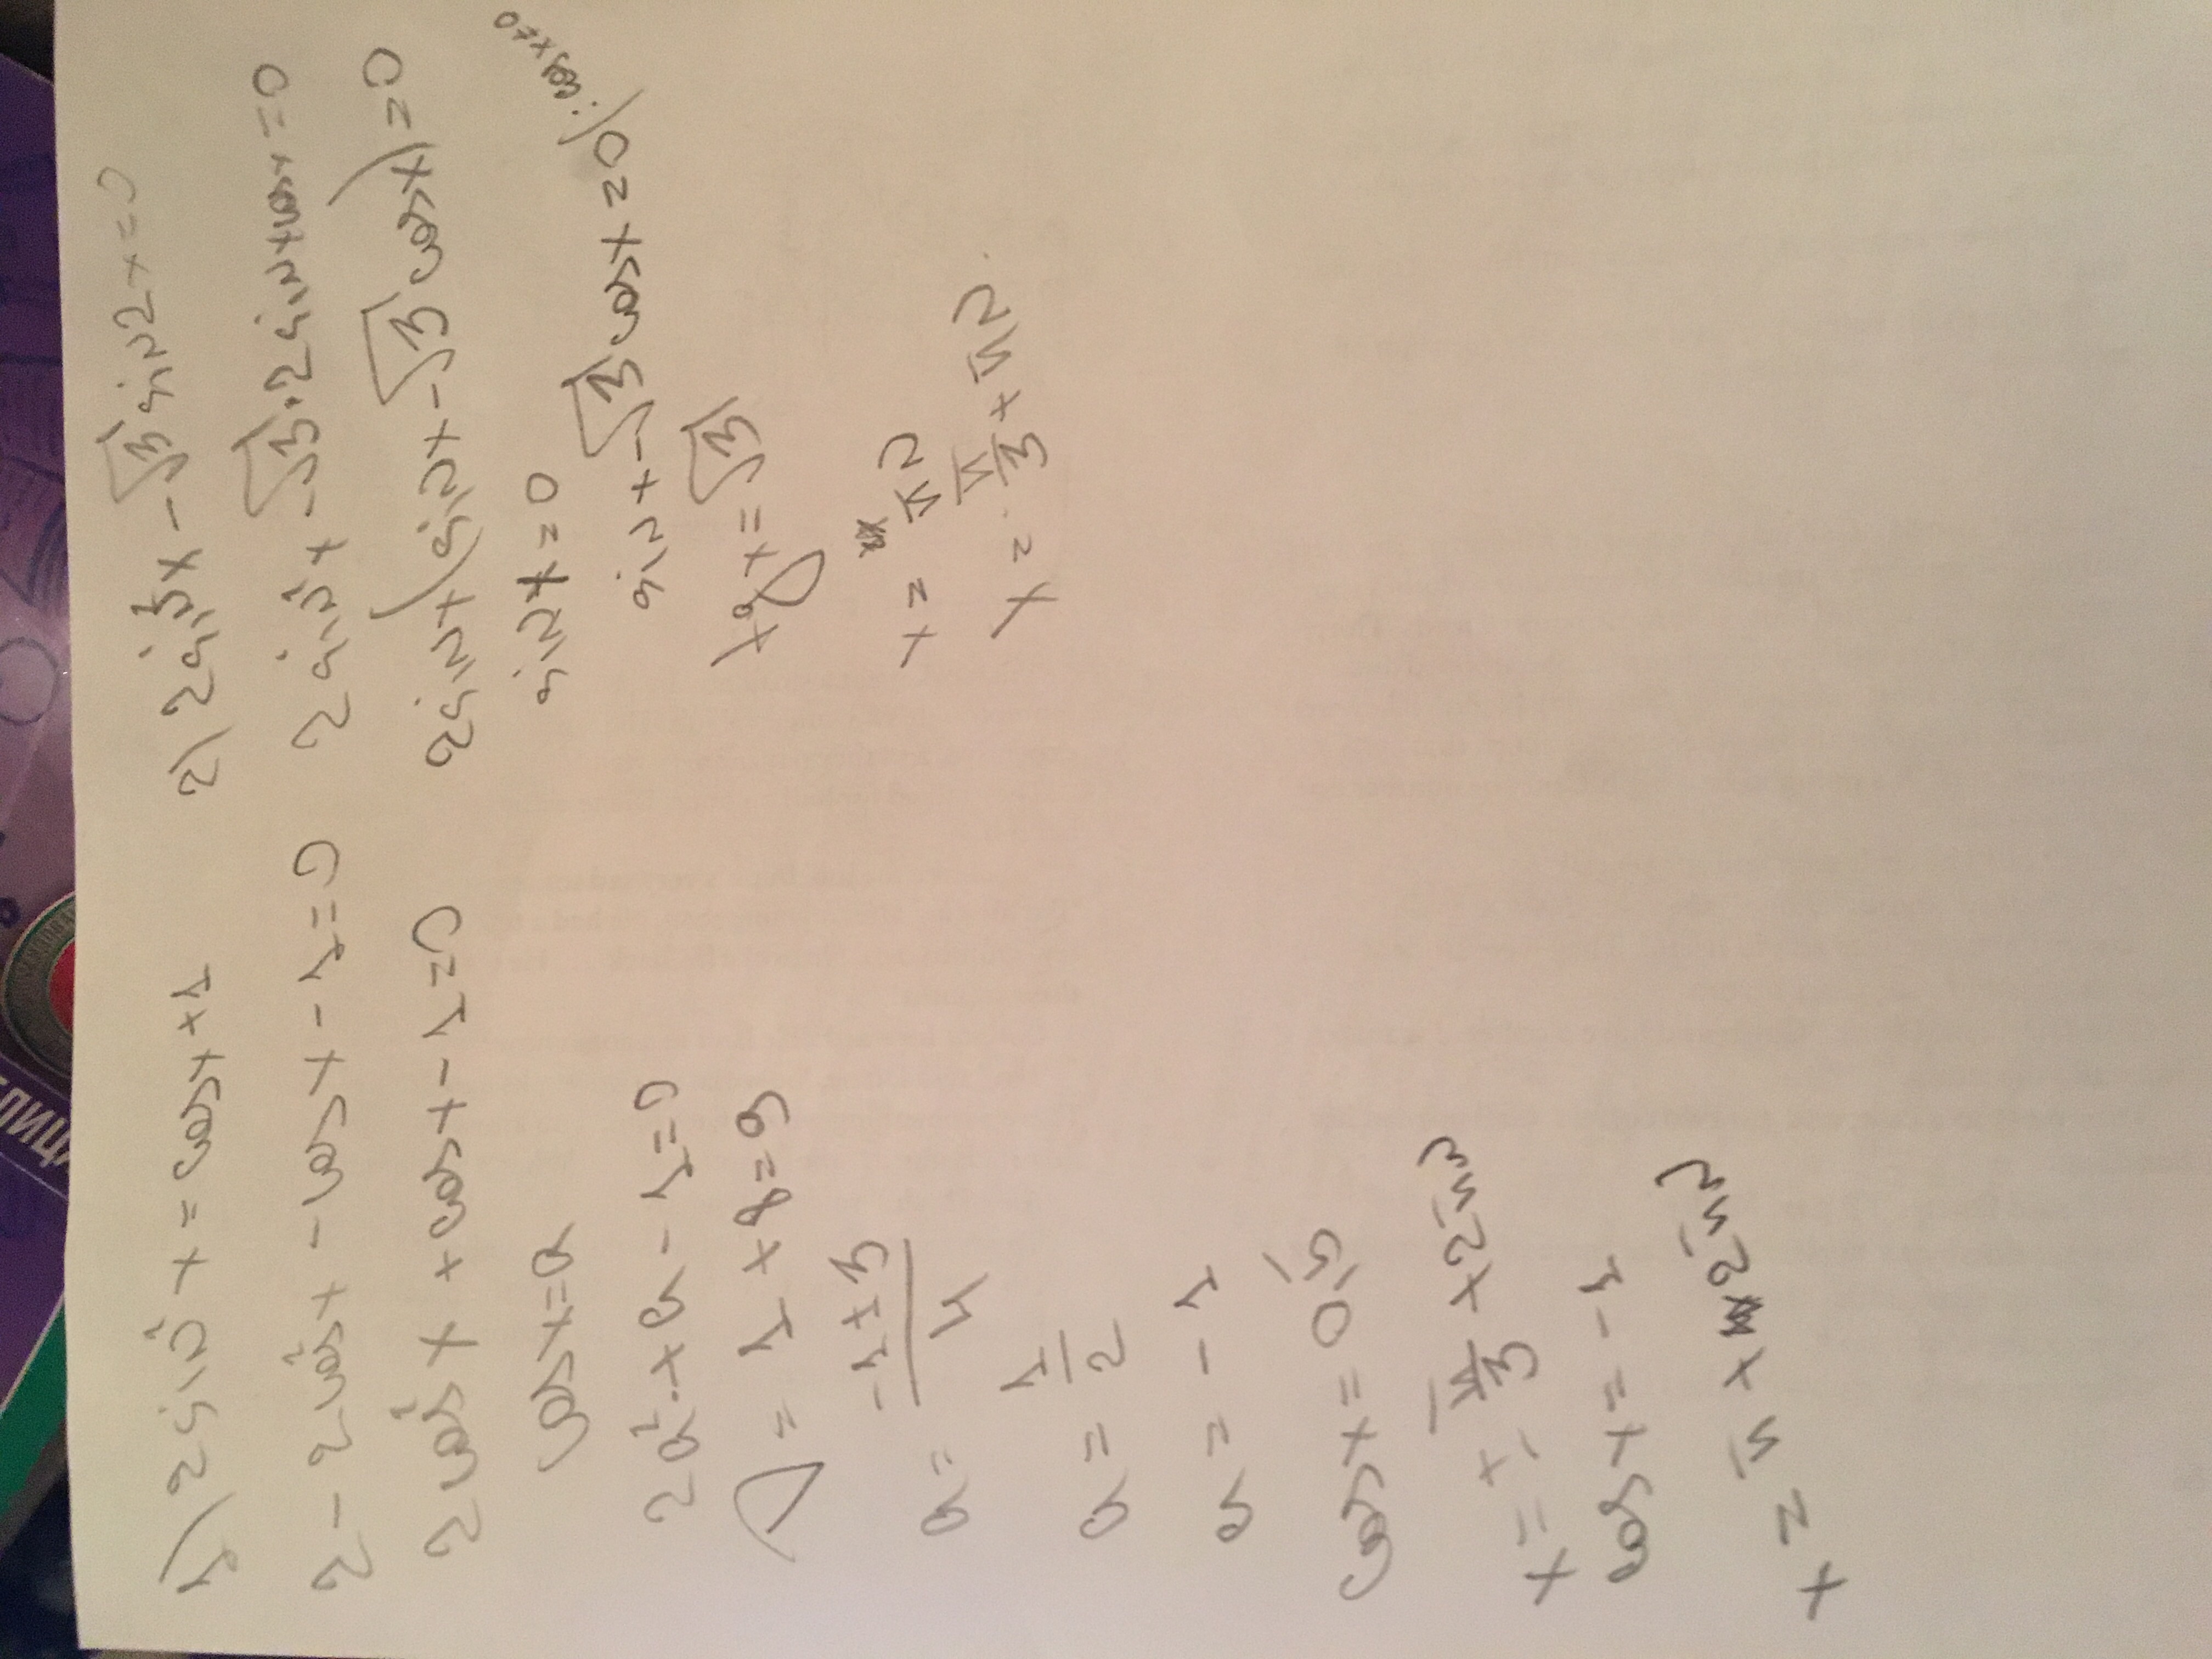 1) 2sin²x = cosx+1
2 - 2cos²x - cosx - 1=0
2cos²x + cosx - 1=0
cosx=a
2a²+a - 1=0
D = 1+8=9
a = (-1±3)/4
a = 1/2
a = -1
cosx = 0,5
x = ± π/3 + 2πn
cosx = -1
x = π + 2πn
2) 2sin²x - √3 sin2x=0
2sin²x - √3·2sinxcosx=0
2sinx(sinx-√3cosx)=0
sinx=0
sinx-√3cosx=0 |:cosx≠0
tgx=√3
x = πn
x = π/3 + πn